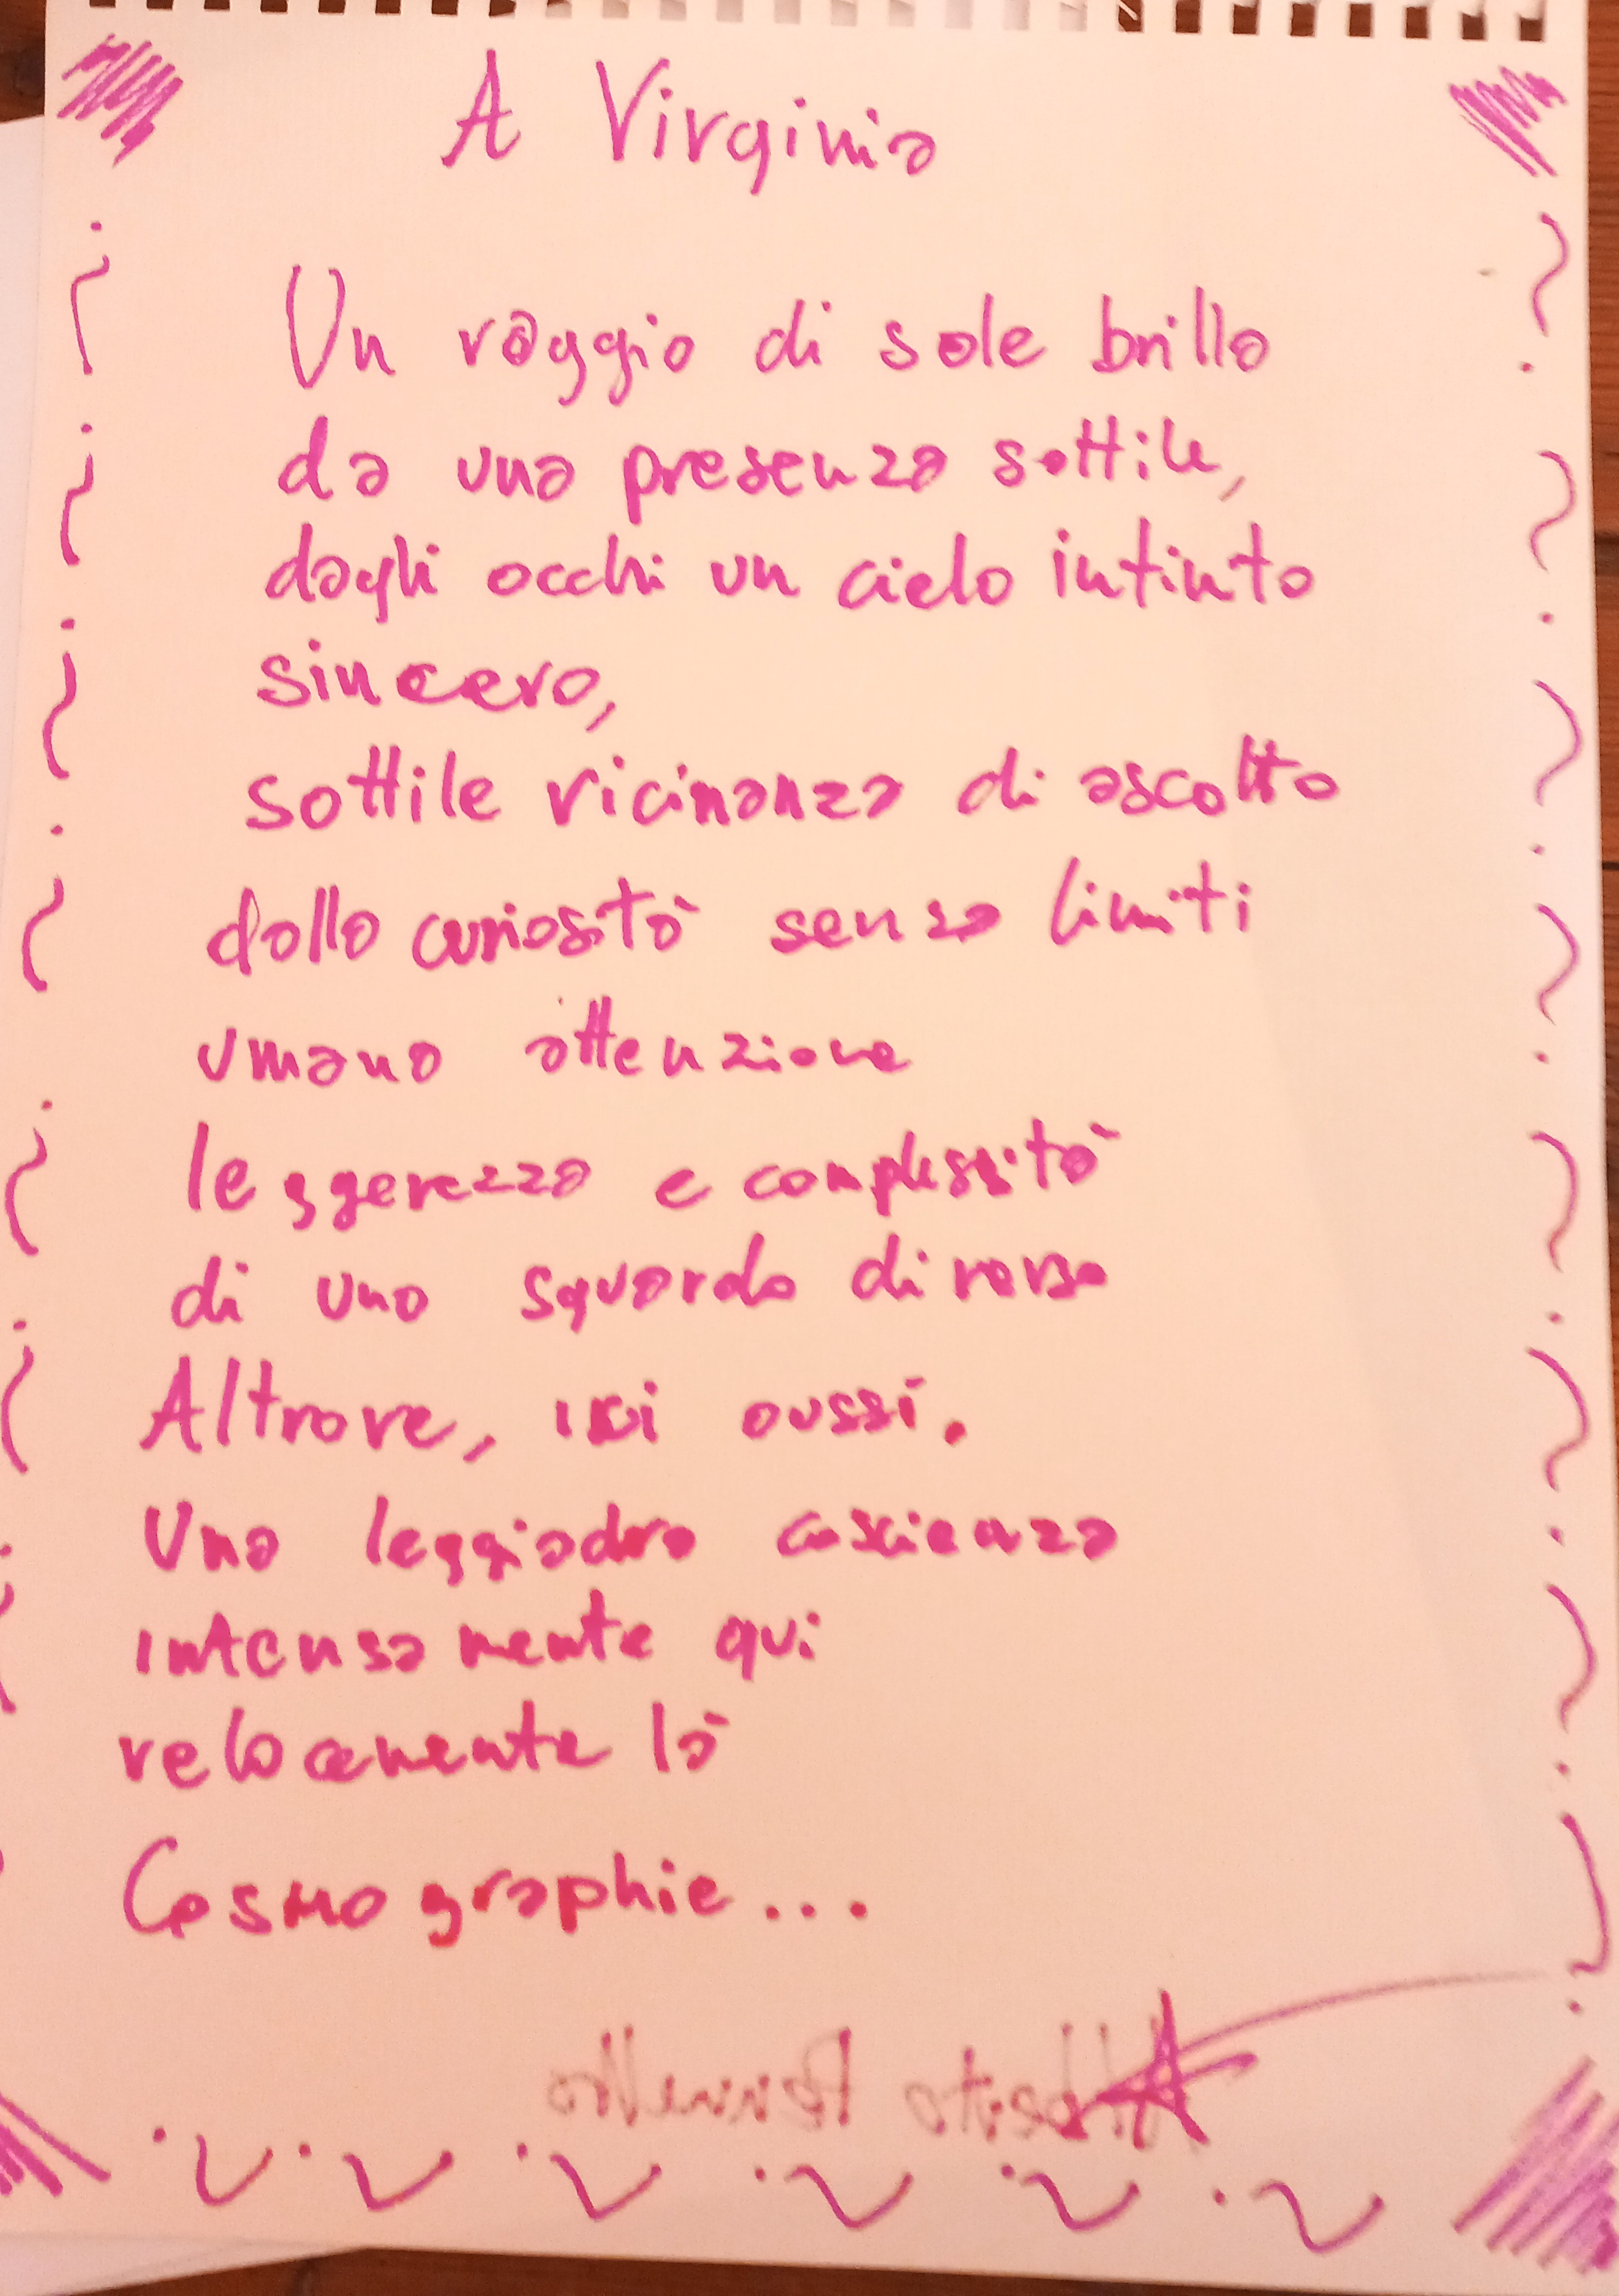 A Virginia
Un raggio di sole brilla
da una presenza sottile,
dagli occhi un cielo intinto
sincero,
sottile vicinanza di ascolto
dalla curiosità senza limiti
umana attenzione
leggerezza e complessità
di uno sguardo diverso
Altrove, ici aussi.
Una leggiadra coscienza
intensamente qui
velocemente là
Cosmographie...
Alberto